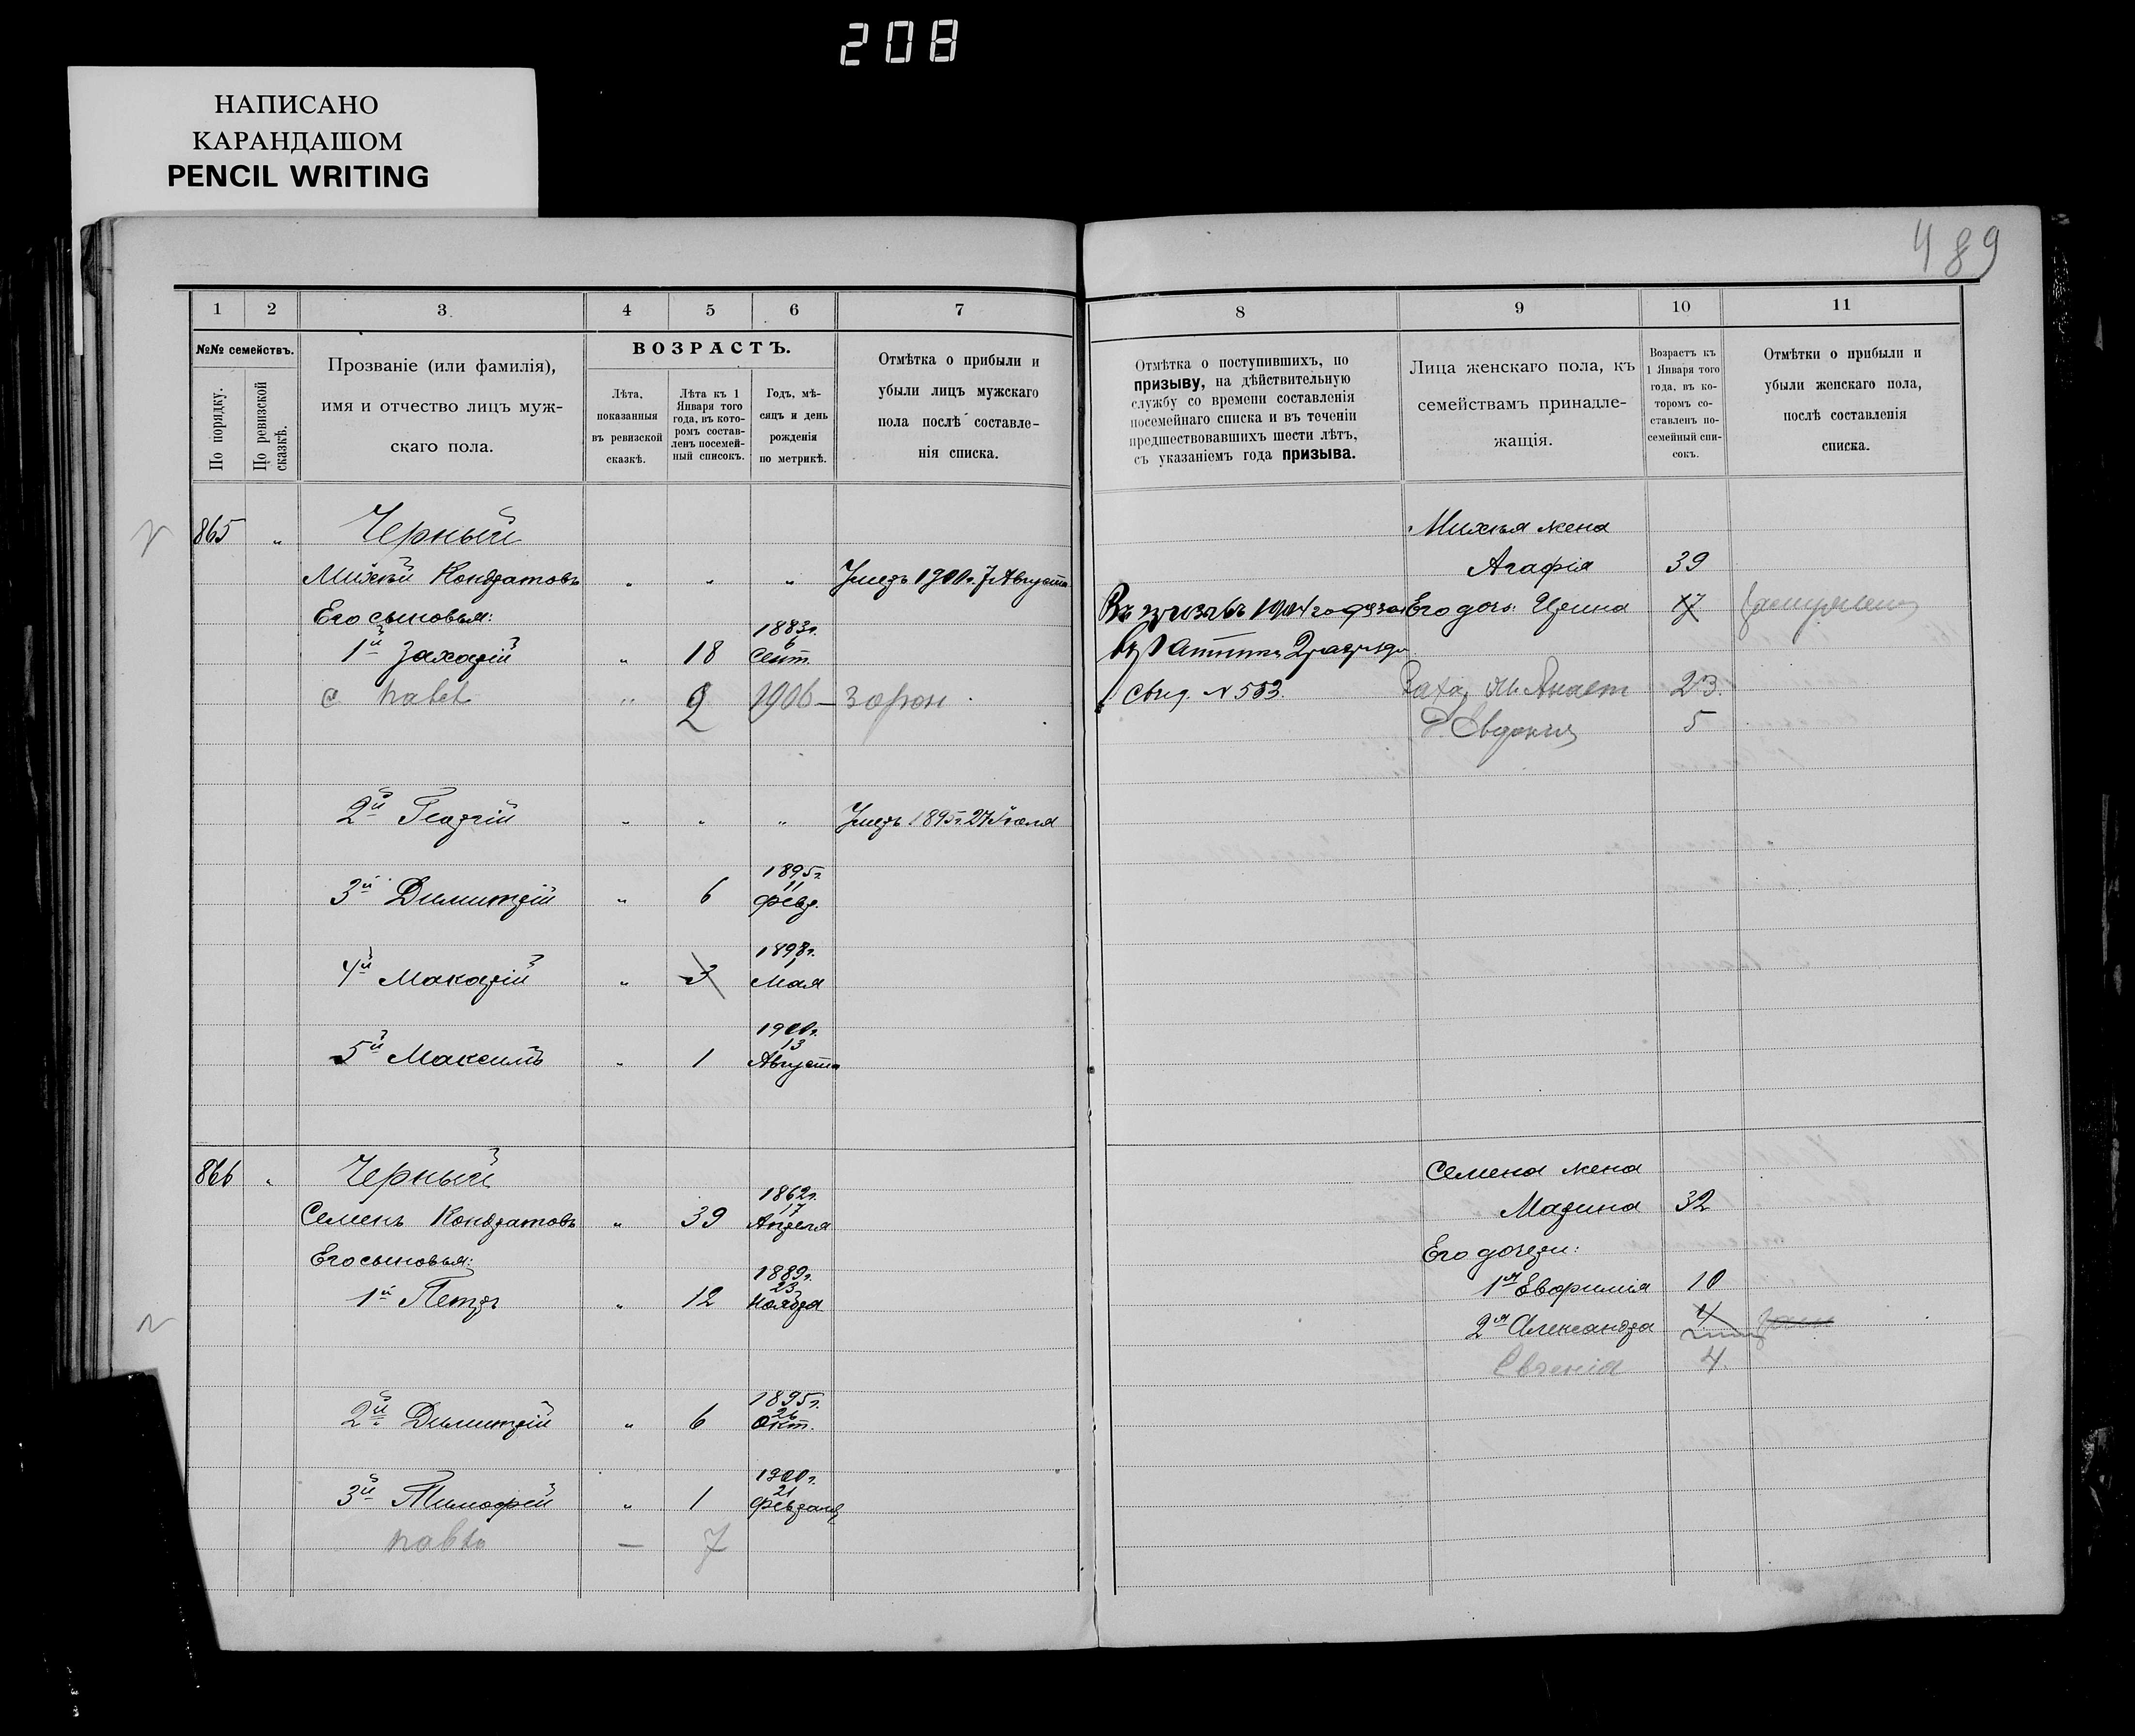 208
НАПИСАНО
КАРАНДАШОМ
PENCIL WRITING
489
1 2 3 4 5 6 7
№№ семействъ.
По порядку.
По ревизской сказкѣ.
Прозваніе (или фамилія),
имя и отчество лицъ муж-
скаго пола.
ВОЗРАСТЪ.
Лѣта,
показанныя
въ ревизской
сказкѣ.
Лѣта къ 1
Января того
года, въ кото-
ромъ состав-
ленъ посемей-
ный список.
Годъ, мѣ-
сяцъ и день
рожденія
по метрикѣ.
Отмѣтка о прибыли и
убыли лицъ мужскаго
пола послѣ составле-
нія списка.
8 9 10 11
Отмѣтка о поступившихъ, по
призыву, на дѣйствительную
службу со времени составленія
посемейнаго списка и въ теченіи
предшествовавшихъ шести лѣтъ,
съ указаніемъ года призыва.
Лица женскаго пола, къ
семействамъ принадле-
жащія.
Возрастъ къ
1 Января того
года, въ ко-
торомъ со-
ставленъ по-
семейный спи-
сокъ.
Отмѣтки о прибыли и
убыли женскаго пола,
послѣ составленія
списка.
865 " Черный
Михѣй Кондратовъ " " " Умеръ 1900г. 7 Августа
Его сыновья:
1й Захарій " 18 1883г. 6 Сент.
с Павел " 2 1906 —
2й Георгій " " " Умеръ 1895г. 27 Іюля
3й Димитрій " 6 1895г. 11 Февр.
4й Макарій " 3 1898г. 1 Мая
5й Максимъ " 1 1900г. 13 Августа
Михѣя жена
Агафія 39
Въ призывъ 1904 года
Его дочь: Ирина 17
2 разряда
Свид. № 553.
Заха. ж. Анаст 23.
д. Евдокия 5
866 " Черный
Семенъ Кондратовъ " 39 1862г. 17 Апреля
Его сыновья:
1й Петръ " 12 1889г. 23 Ноября
2й Димитрій " 6 1895г. 26 Окт.
3й Тимофей " 1 1900г. 21 Февраля
Павло — 7
Семена жена
Марина 32
Его дочери:
1я Евфимія 10
2я Александра 4
Евгенія 4.